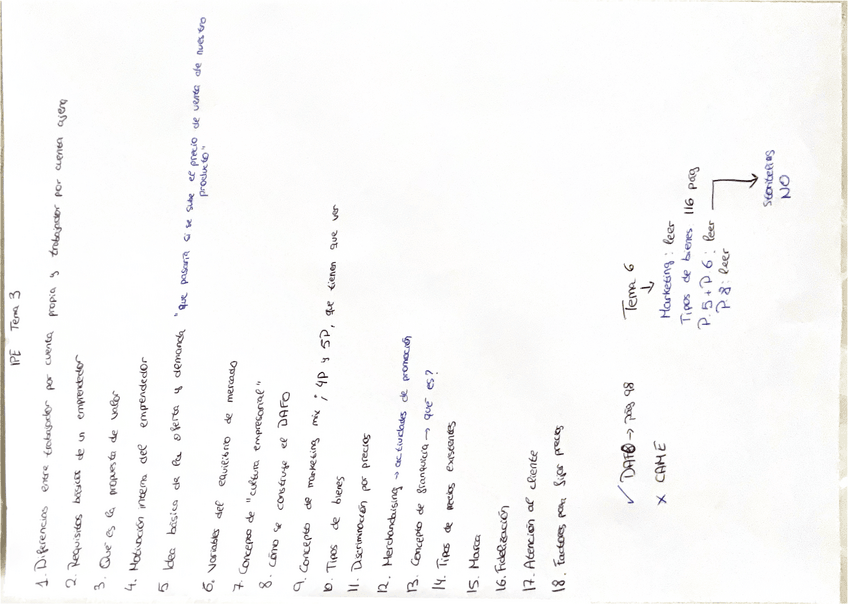 IPE Tema 3
1. Diferencias entre trabajador por cuenta propia y trabajador por cuenta ajena
2. Requisitos básicos de un emprendedor
3. Que es la propuesta de valor
4. Motivación interna del emprendedor
5 Idea básica de la oferta y demanda "que pasaría si se sube el precio de venta de nuestro
producto"
6. Variables del equilibrio de mercado
7. Concepto de "cultura empresarial"
8. Cómo se construye el DAFO
9. Concepto de marketing mix ; 4P y 5P, que tienen que ver
10. Tipos de bienes
11. Discriminación por precios
12. Merchandaising → actividades de promoción
13. Concepto de franquicia → que es?
14. Tipos de precios existentes
15. Marca
16. Fidelización
17. Atención al cliente
18. Factores para fijar precios
✓ DAFO → pág 98
x CAME
Tema 6
↓
Marketing : leer
Tipos de bienes 116 pág
P. 5 + P 6 : leer
P 8 : leer
NO